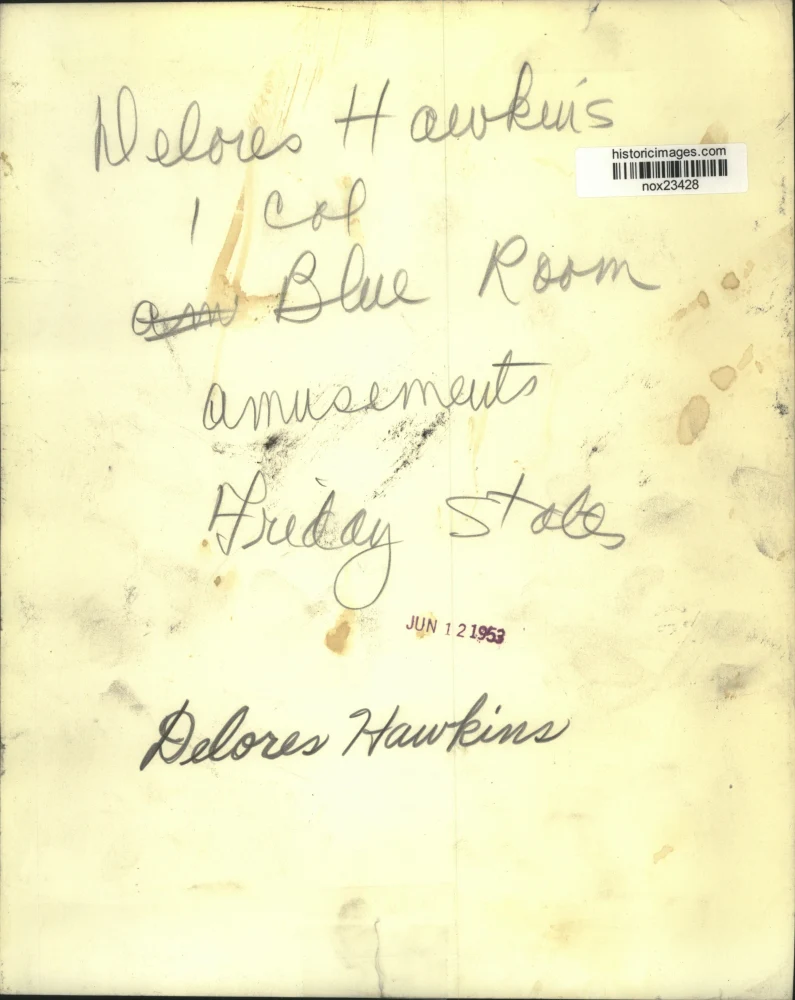 Delores Hawkins
historicimages.com
nox23428
1 col
am Blue Room
amusements
Friday States
JUN 12 1953
Delores Hawkins